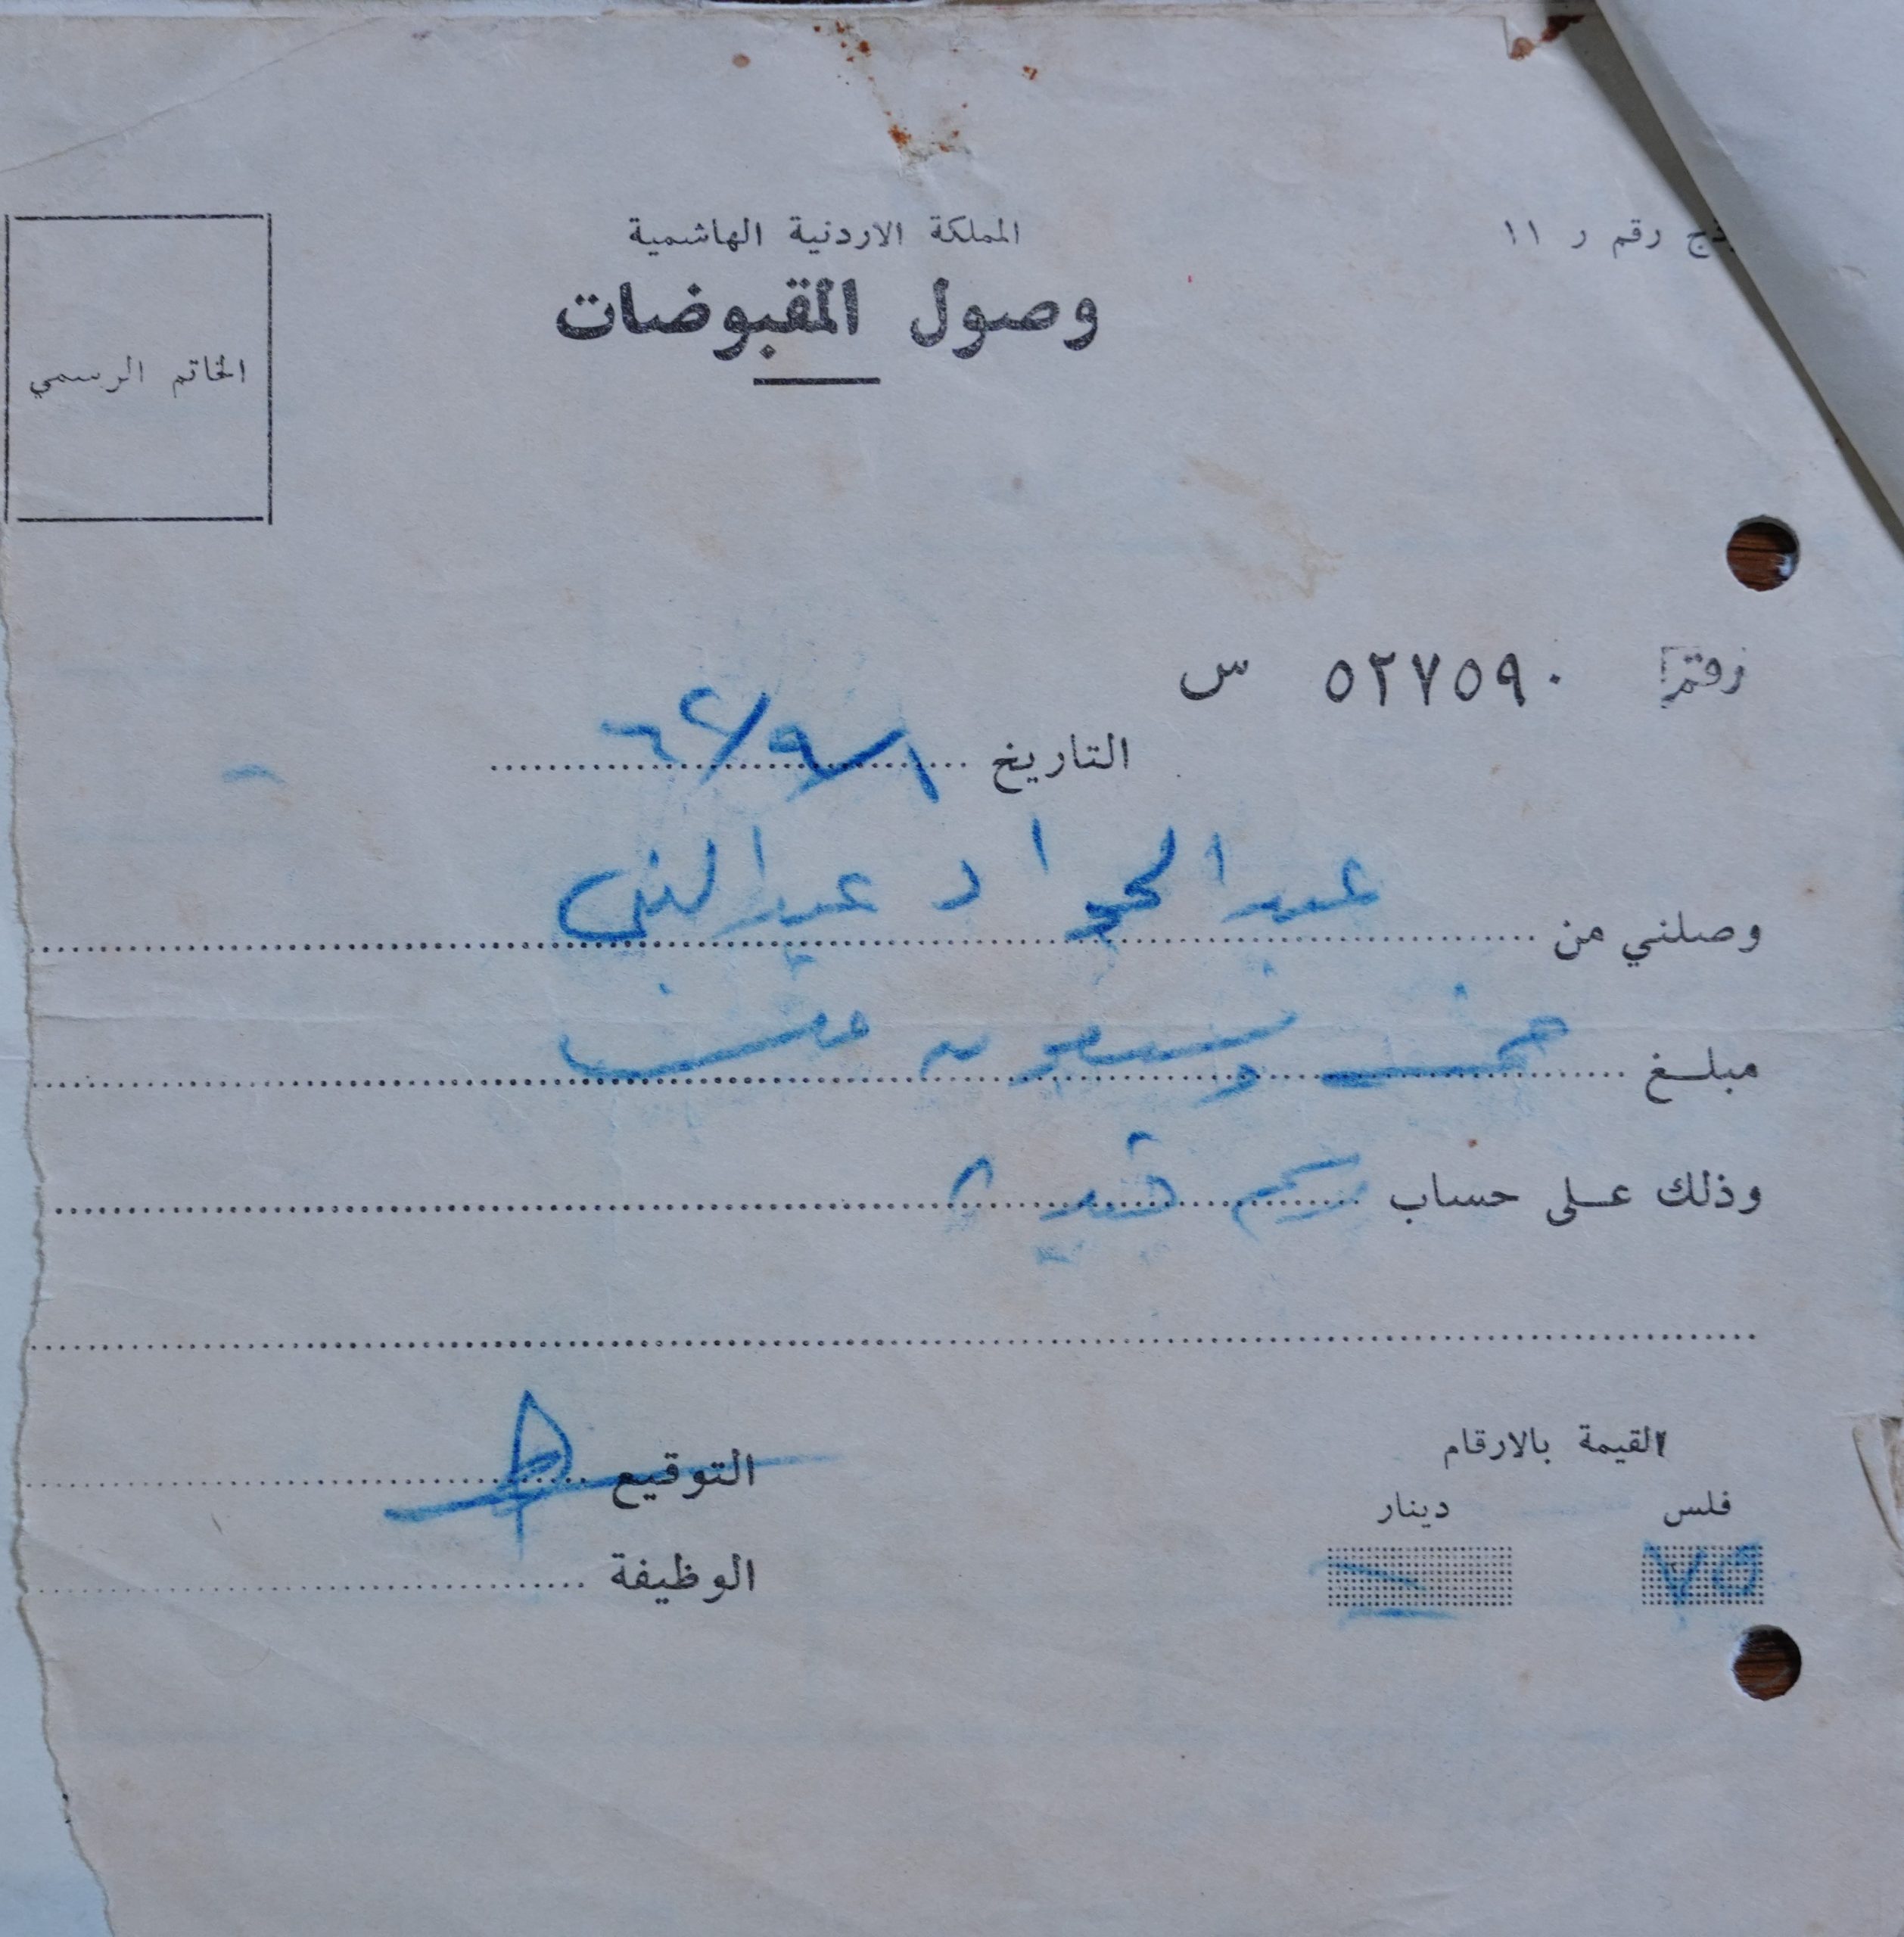 نموذج رقم ر ١١
المملكة الاردنية الهاشمية
وصول المقبوضات
الخاتم الرسمي
رقم ٥٢٧٥٩٠ س
التاريخ ١/٩/٦٢
وصلني من عبد الجواد عبد النبي
مبلغ خمسة وسبعون فلس
وذلك على حساب رسم
القيمة بالارقام
فلس دينار
٧٥ —
التوقيع
الوظيفة